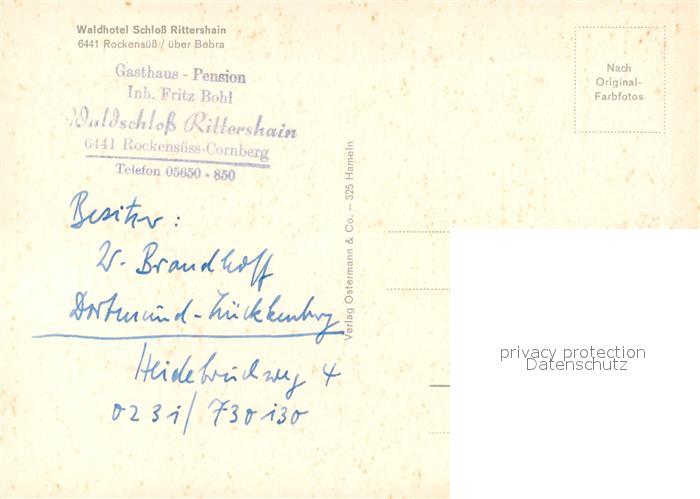 Waldhotel Schloß Rittershain
6441 Rockensüß / über Bebra
Gasthaus - Pension
Inh. Fritz Bohl
Waldschloß Rittershain
6441 Rockensüss-Cornberg
Telefon 05650 - 850
Nach
Original-
Farbfotos
Verlag Ostermann & Co. – 325 Hameln
Besitzer:
W. Brandhoff
Dortmund-Lücklemberg
Heidebruchweg 4
0231/730130
privacy protection
Datenschutz